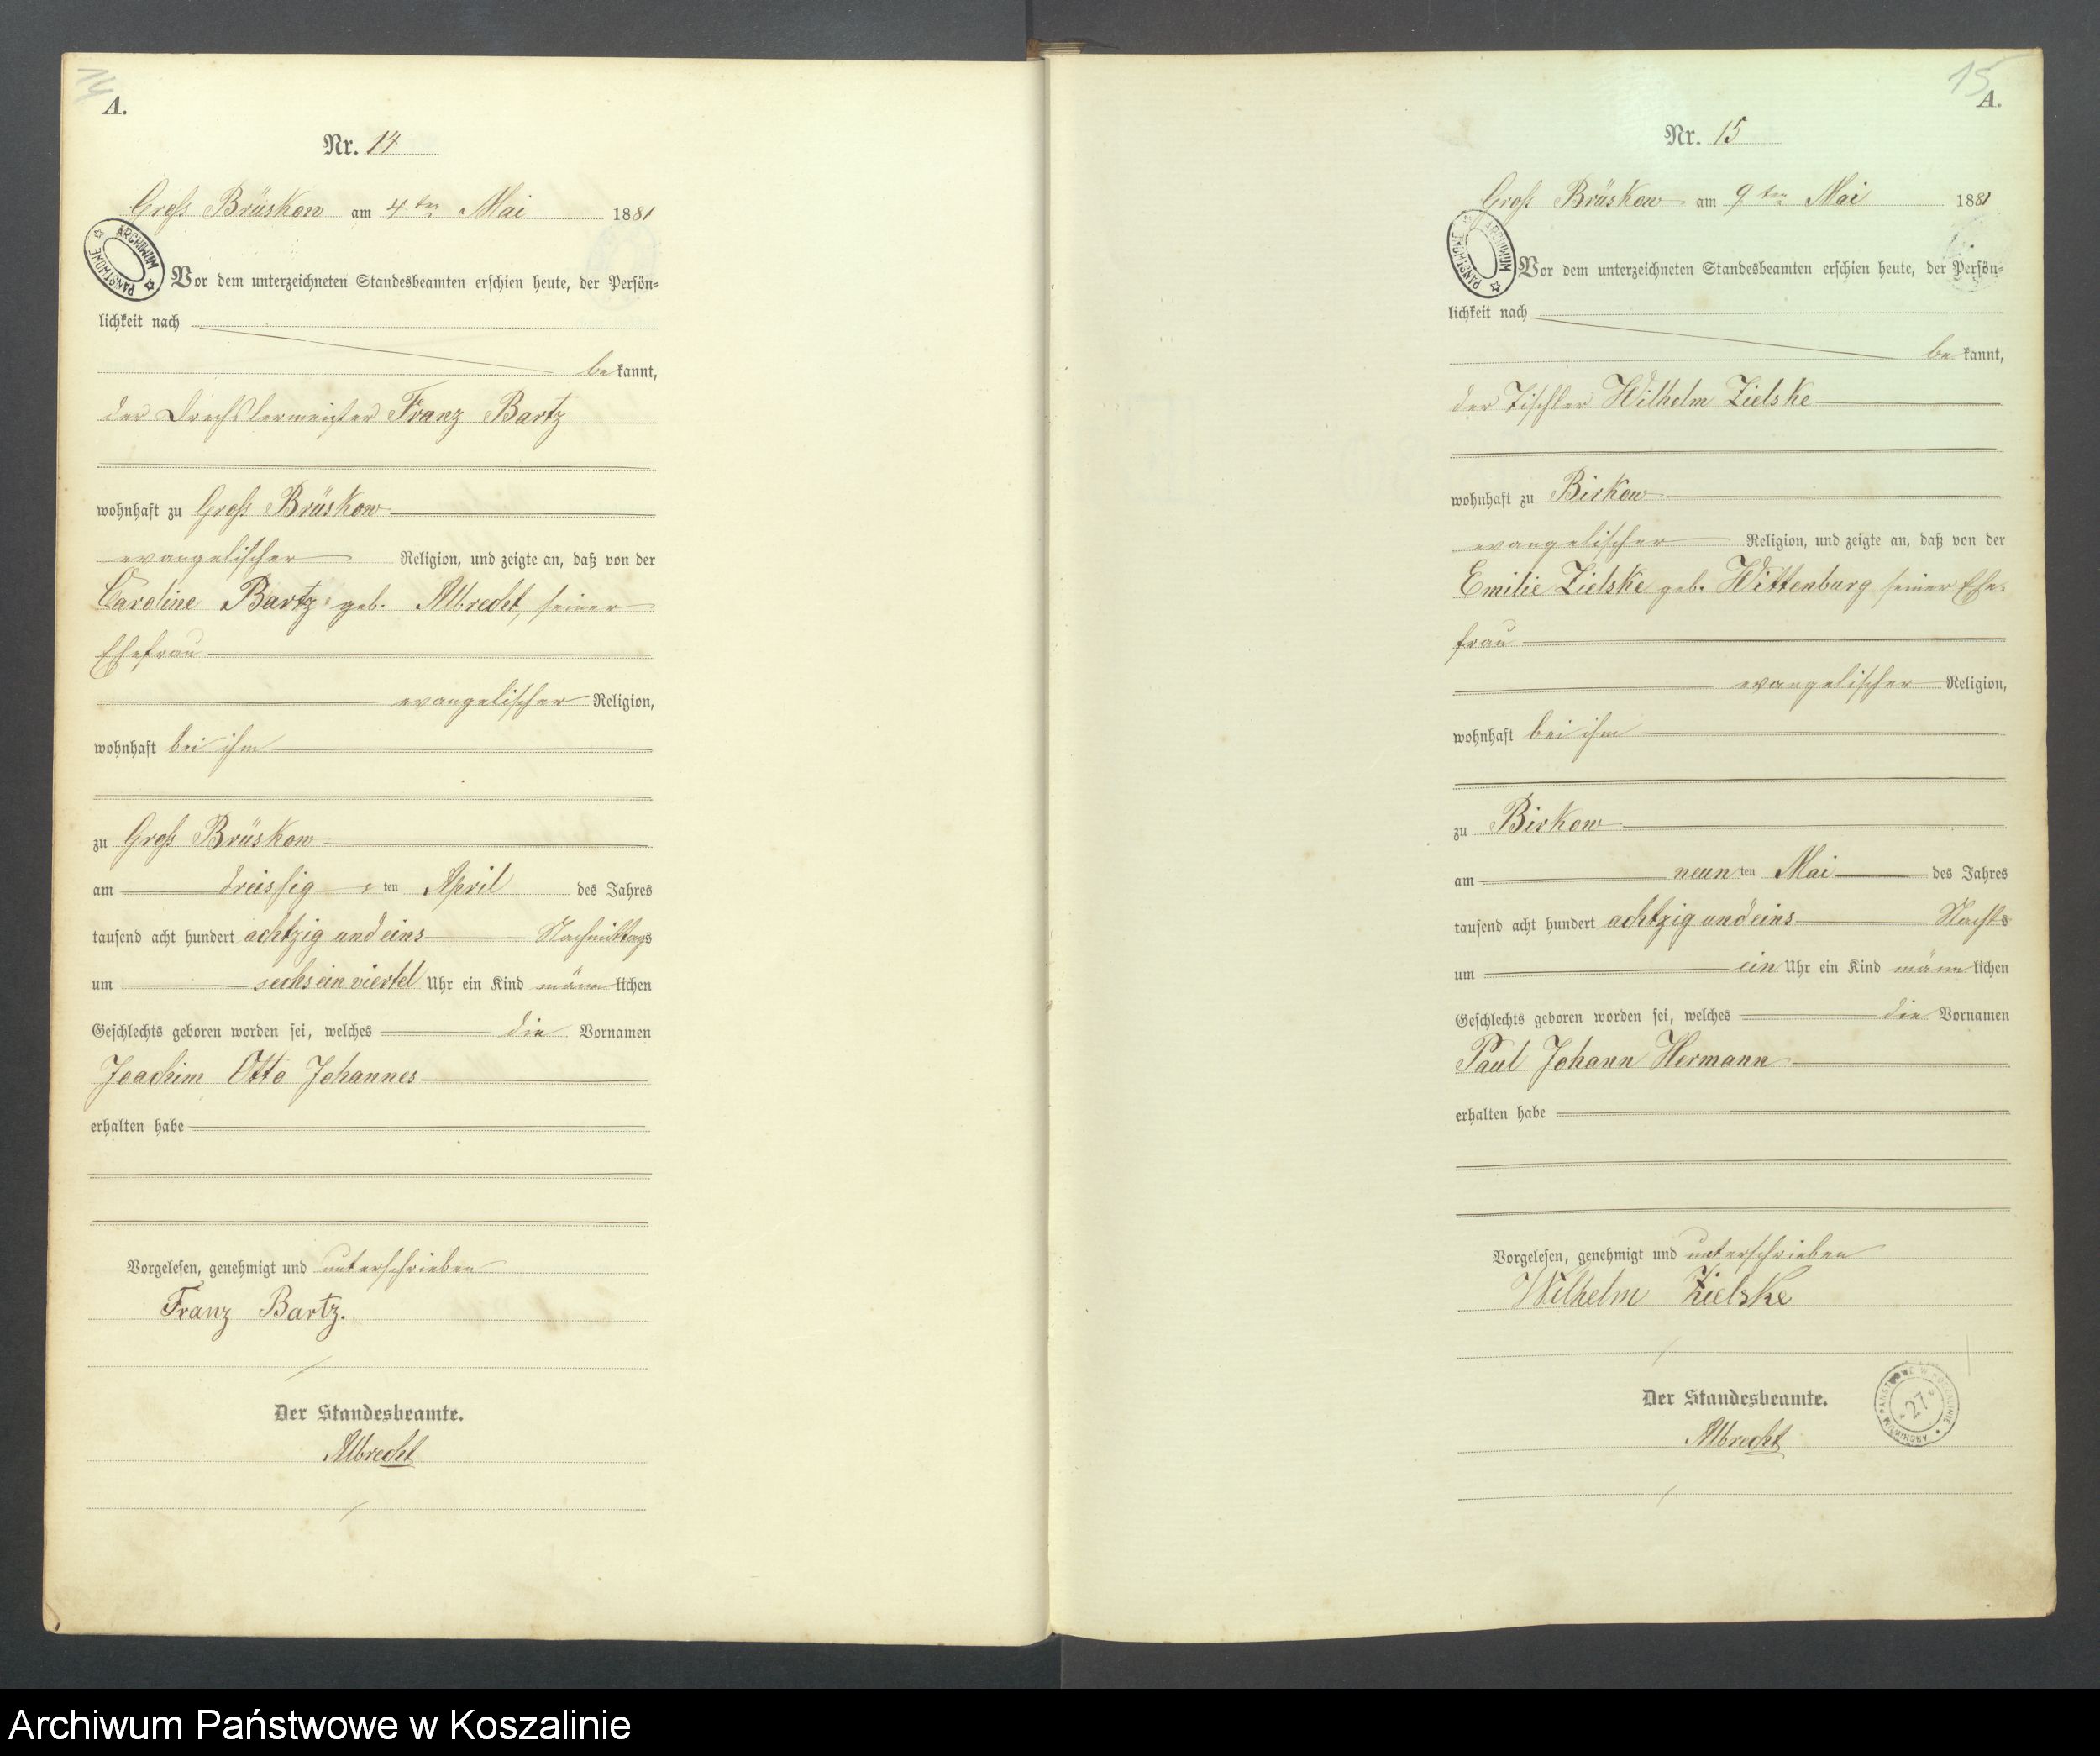 14
A.
Nr. 14
Groß Brüskow am 4ten Mai 1881
ARCHIWUM PAŃSTWOWE
Vor dem unterzeichneten Standesbeamten erschien heute, der Persön-
lichkeit nach
bekannt,
der Drechslermeister Franz Bartz
wohnhaft zu Groß Brüskow
evangelischer Religion, und zeigte an, daß von der
Caroline Bartz geb. Albrecht, seiner
Ehefrau
evangelischer Religion,
wohnhaft bei ihm
zu Groß Brüskow
am dreissigsten April des Jahres
tausend acht hundert achtzig und eins Nachmittags
um sechs ein viertel Uhr ein Kind männlichen
Geschlechts geboren worden sei, welches die Vornamen
Joachim Otto Johannes
erhalten habe
Vorgelesen, genehmigt und unterschrieben
Franz Bartz.
Der Standesbeamte.
Albrecht
15
A.
Nr. 15
Groß Brüskow am 9ten Mai 1881
ARCHIWUM PAŃSTWOWE
Vor dem unterzeichneten Standesbeamten erschien heute, der Persön-
lichkeit nach
bekannt,
der Tischler Wilhelm Zielske
wohnhaft zu Birkow
evangelischer Religion, und zeigte an, daß von der
Emilie Zielske geb. Wittenburg seiner Ehe-
frau
evangelischer Religion,
wohnhaft bei ihm
zu Birkow
am neunten Mai des Jahres
tausend acht hundert achtzig und eins Nachts
um ein Uhr ein Kind männlichen
Geschlechts geboren worden sei, welches die Vornamen
Paul Johann Hermann
erhalten habe
Vorgelesen, genehmigt und unterschrieben
Wilhelm Zielske
Der Standesbeamte.
ARCHIWUM PAŃSTWOWE W KOSZALINIE * 27 *
Albrecht
Archiwum Państwowe w Koszalinie